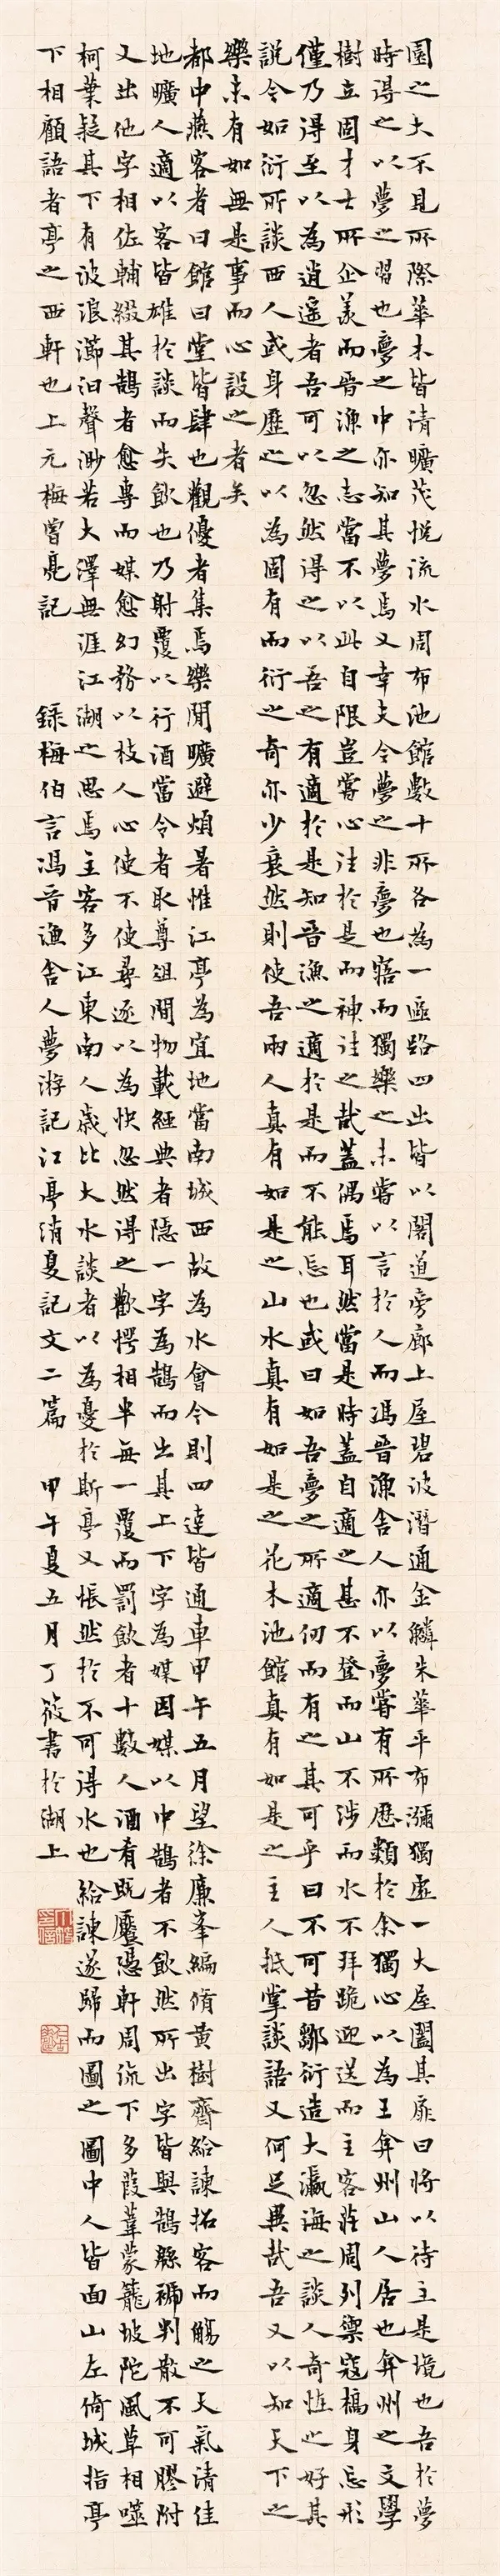 園之大不見所際華木皆清曠茂悅流水周布池館數十所各為一區路四出皆以閣道旁廊上屋碧波潛通金鱗朱華平布瀰獨虛一大屋闔其扉曰將以待主是境也吾於夢
時得之以夢之習也夢之中亦知其夢焉又幸夫今夢之非夢也寤而獨樂之未嘗以言於人而馮晉漁舍人亦以夢嘗有所歷類於余獨心以為王弇州山人居也弇州之文學
樹立固才士所企羨而晉漁之志當不以此自限豈嘗心注於是而神注之哉蓋偶焉耳然當是時蓋自適之甚不登而山不涉而水不拜跪迎送而主客莊周列禦寇槁身忘形
僅乃得至以為逍遙者吾可以忽然得之以吾之有適於是知晉漁之適於是而不能忘也或曰如吾夢之所適仞而有之其可乎曰不可昔鄒衍造大瀛海之談人奇怪之好其
說令如衍所談西人或身歷之以為固有而衍之奇亦少衰然則使吾兩人真有如是之山水真有如是之花木池館真有如是之主人抵掌談語又何足異哉吾又以知天下之
樂未有如無是事而心設之者矣
都中燕客者曰館曰堂皆肆也觀優者集焉樂閒曠避煩暑惟江亭為宜地當南城西故為水會今則四達皆通車甲午五月望徐廉峯編脩黃樹齋給諫招客而觴之天氣清佳
地曠人適以客皆雄於談而失飲也乃射覆以行酒當令者取尊俎間物載經典者隱一字為鵠而出其上下字為媒因媒以中鵠者不飲然所出字皆與鵠緜褫判散不可膠附
又出他字相佐輔綴其鵠者愈專而媒愈幻務以枝人心使不使尋逐以為快忽然得之歡愕相半無一覆而罰飲者十數人酒肴既饜憑軒周流下多葭葦蒙籠坡陀風草相噬
柯葉疑其下有波浪㵽汩聲渺若大澤無涯江湖之思焉主客多江東南人歲比大水談者以為憂於斯亭又悵然於不可得水也給諫遂歸而圖之圖中人皆面山左倚城指亭
下相顧語者亭之西軒也上元梅曾亮記 錄梅伯言馮晉漁舍人夢游記江亭消夏記文二篇 甲午夏五月丁筱書於湖上